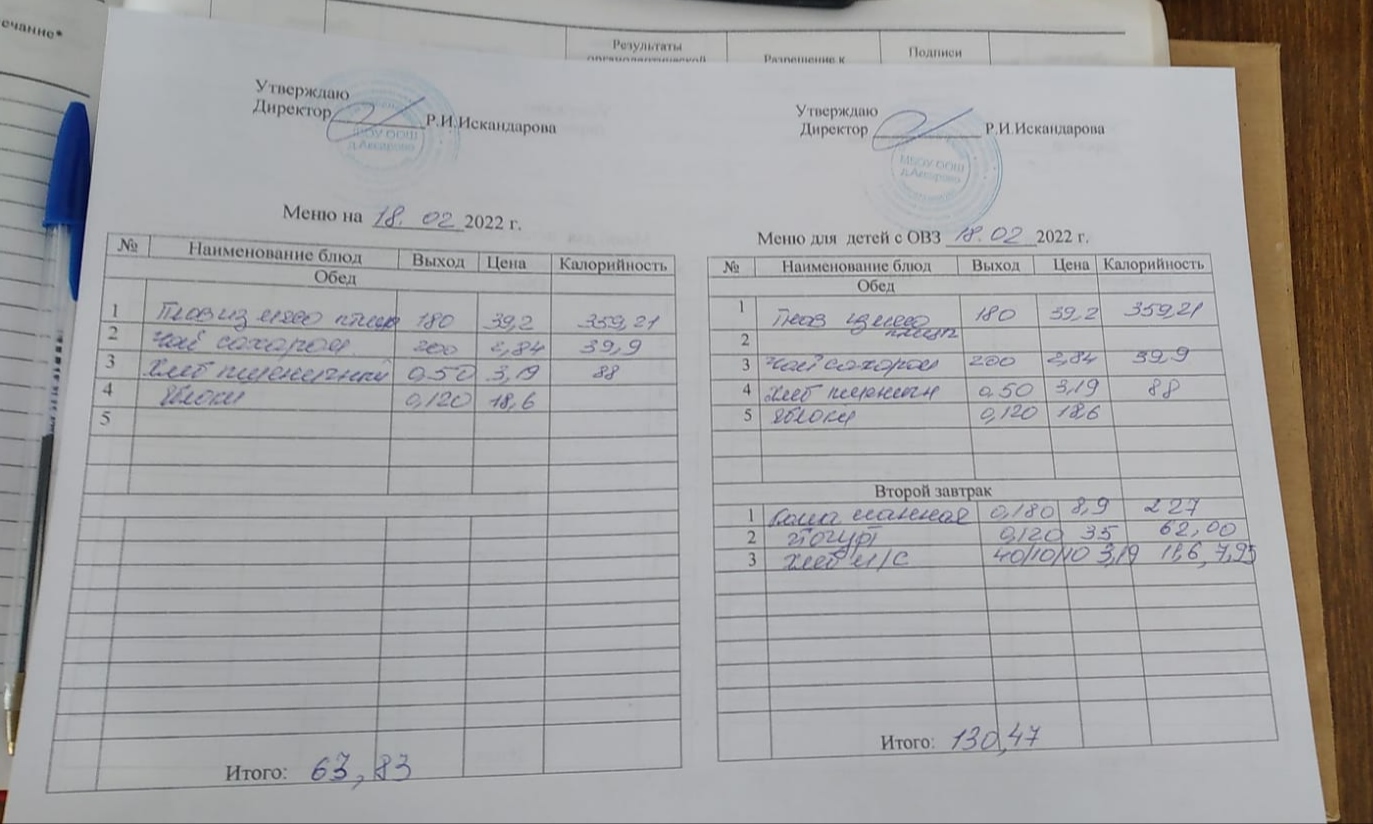 ечание*
Результаты
органолептической
Разрешение к
Подписи
Утверждаю
Директор Р.И.Искандарова
МБОУ ООШ
Меню на 18. 02 2022 г.
№ Наименование блюд Выход Цена Калорийность
Обед
1 Плов из мясо птицы 180 39,2 359,21
2 Чай сахаром 200 2,84 39,9
3 Хлеб пшеничный 0,50 3,19 88
4 Яблоки 0,120 18,6
5
Итого: 63,83
Утверждаю
Директор Р.И.Искандарова
МБОУ ООШ
Меню для детей с ОВЗ 18.02 2022 г.
№ Наименование блюд Выход Цена Калорийность
Обед
1 Плов из мясо 180 39,2 359,21
птицы
2
3 Чай сахаром 200 2,84 39,9
4 Хлеб пшеничн 0,50 3,19 88
5 Яблоки 0,120 18,6
Второй завтрак
1 Каша манная 0,180 8,9 227
2 Йогурт 0,120 35 62,00
3 Хлеб м/с 40/10/10 3,19
Итого: 130,47